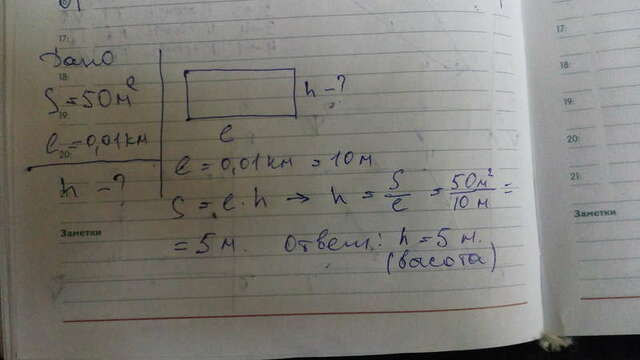 17:
17:
Дано
18:
18:
S = 50 м²
h - ?
19:
19:
l = 0,01 км
l
20:
20:
l = 0,01 км = 10 м
h - ?
21:
S = l · h → h = S/l = 50 м²/10 м =
Заметки
Заметки
= 5 м. Ответ: h = 5 м.
(высота)